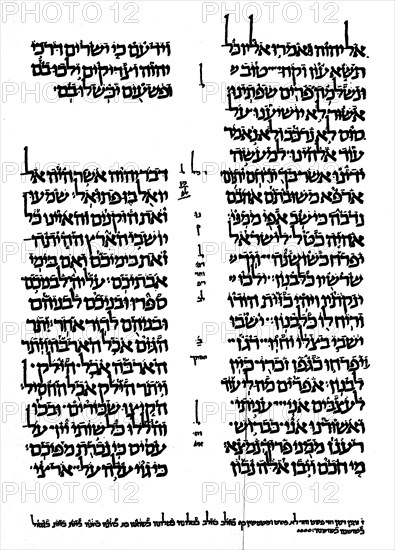 אל יהוה ואמרו אליו כל
תשא עון וקח טוב
ונשלמה פרים שפתינו
אשור לא יושיענו על
סוס לא נרכב ולא נאמר
עוד אלהינו למעשה
ידינו אשר בך ירחם יתום
ארפא משובתם אהבם
נדבה כי שב אפי ממנו
אהיה כטל לישראל
יפרח כשושנה ויך
שרשיו כלבנון ילכו
ינקותיו ויהי כזית הודו
וריח לו כלבנון ישבו
ישבי בצלו יחיו דגן
ויפרחו כגפן זכרו כיין
לבנון אפרים מה לי עוד
לעצבים אני עניתי
ואשורנו אני כברוש
רענן ממני פריך נמצא
מי חכם ויבן אלה נבון
וידעם כי ישרים דרכי
יהוה וצדיקים ילכו בם
ופשעים יכשלו בם
דבר יהוה אשר היה אל
יואל בן פתואל שמעו
זאת הזקנים והאזינו כל
יושבי הארץ ההיתה
זאת בימיכם ואם בימי
אבתיכם עליה לבניכם
ספרו ובניכם לבניהם
ובניהם לדור אחר יתר
הגזם אכל הארבה ויתר
הארבה אכל הילק
ויתר הילק אכל החסיל
הקיצו שכורים ובכו
והיללו כל שותי יין על
עסיס כי נכרת מפיכם
כי גוי עלה על ארצי
PHOTO 12